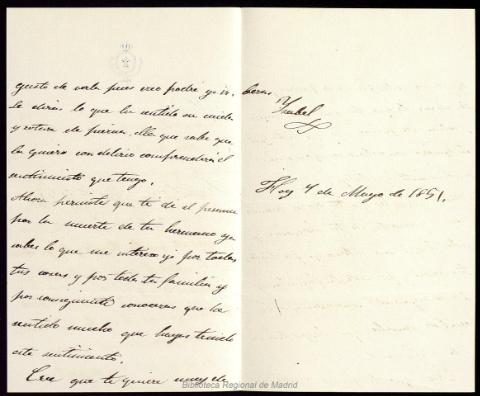 gusto de verla pues creo podré yo ir.
le dirás lo que he sentido su caida
y rotura de pierna, ella que sabe que
la quiero con delirio comprenderá el
sentimiento que tengo.
Ahora permite que te dé el pesame
por la muerte de tu hermano ya
sabes lo que me intereso yo por todas
tus cosas y por toda tu familia y
por consiguiente conoceras que he
sentido mucho que hayas tenido
este sentimiento.
Cree que te quiere muy de
beras
Ysabel
Hoy 7 de Mayo de 1851.
Biblioteca Regional de Madrid